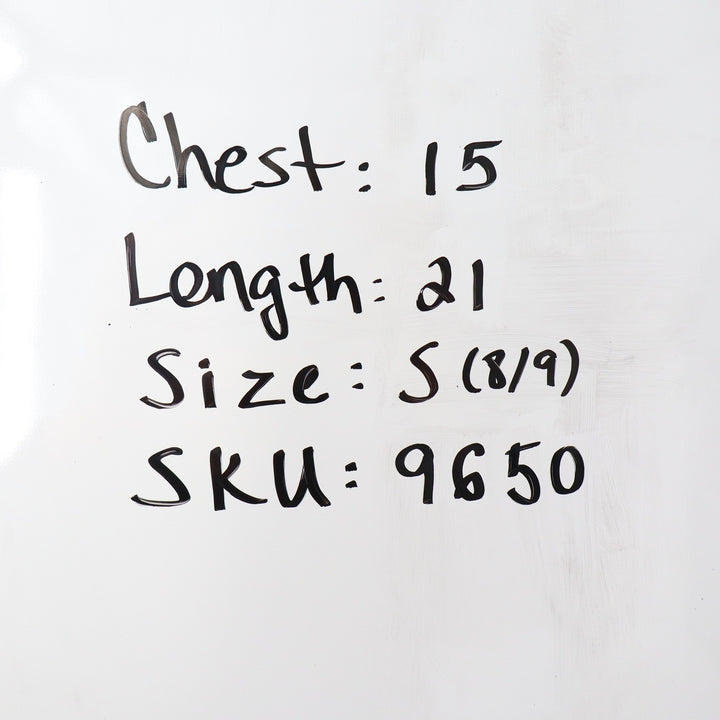 Chest: 15
Length: 21
Size: S (8/9)
SKU: 9650